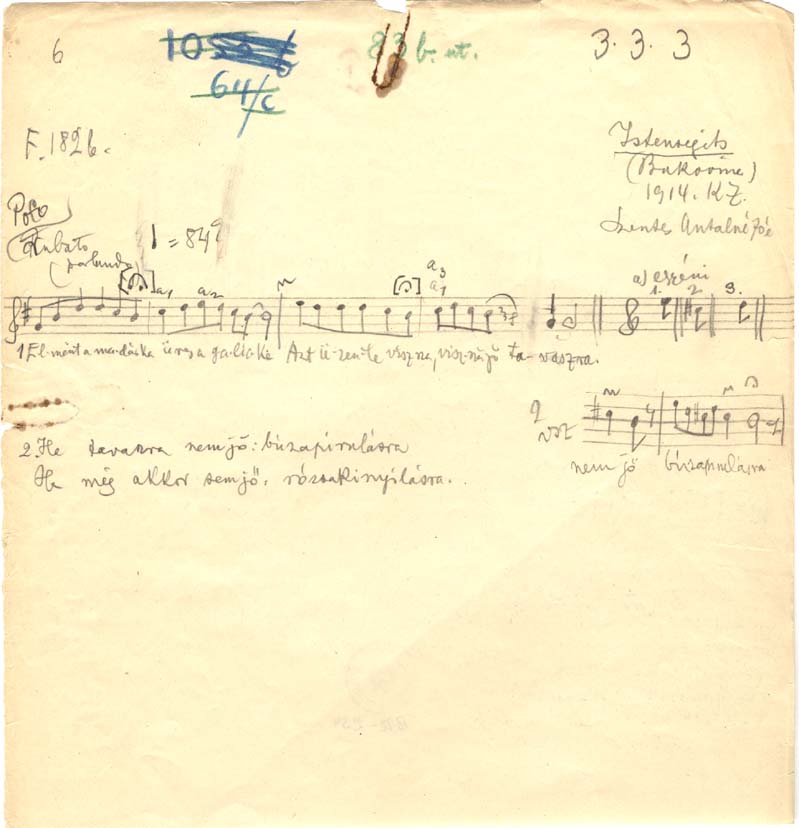 6
64/c
83 b. ut.
3. 3. 3
F. 1826.
Istensegits
(Bukovina)
1914. KZ.
Szentes Antalné
Poco
Rubato
(parlando)
= 84
a1
a2
a3
a1
a)
1.
2
3.
1 El-mënt a ma-dárka üres a ga-lic-ka Azt ü-zen-te visz-sza, visz-sza jő ta-vaszra.
2 vsz
nem jő búzapirulásra
2. Ha tavaszra nem jő: búzapirulásra
Ha még akkor sem jő: rózsakinyílásra.